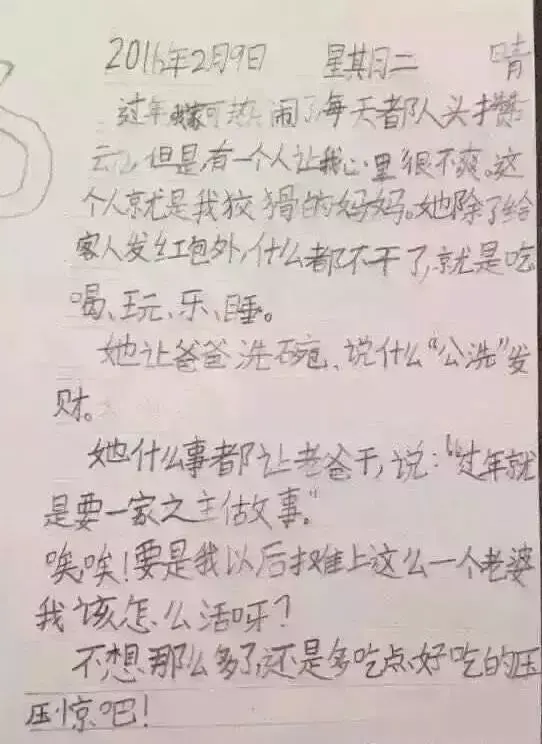 2016年2月9日 星期二 晴
过年我家可热闹了,每天都人头拃攒
云力,但是,有一个人让我心里很不爽。这
个人就是我狡猾的妈妈。她除了给
客人发红包外,什么都不干了,就是吃
喝、玩、乐、睡。
她让爸爸洗碗、说什么“公洗”发
财。
她什么事都让老爸干,说:“过年就
是要一家之主做故事。”
唉唉!要是我以后摊上这么一个老婆
我该怎么活呀?
不想那么多了,还是多吃点好吃的压
压惊吧!